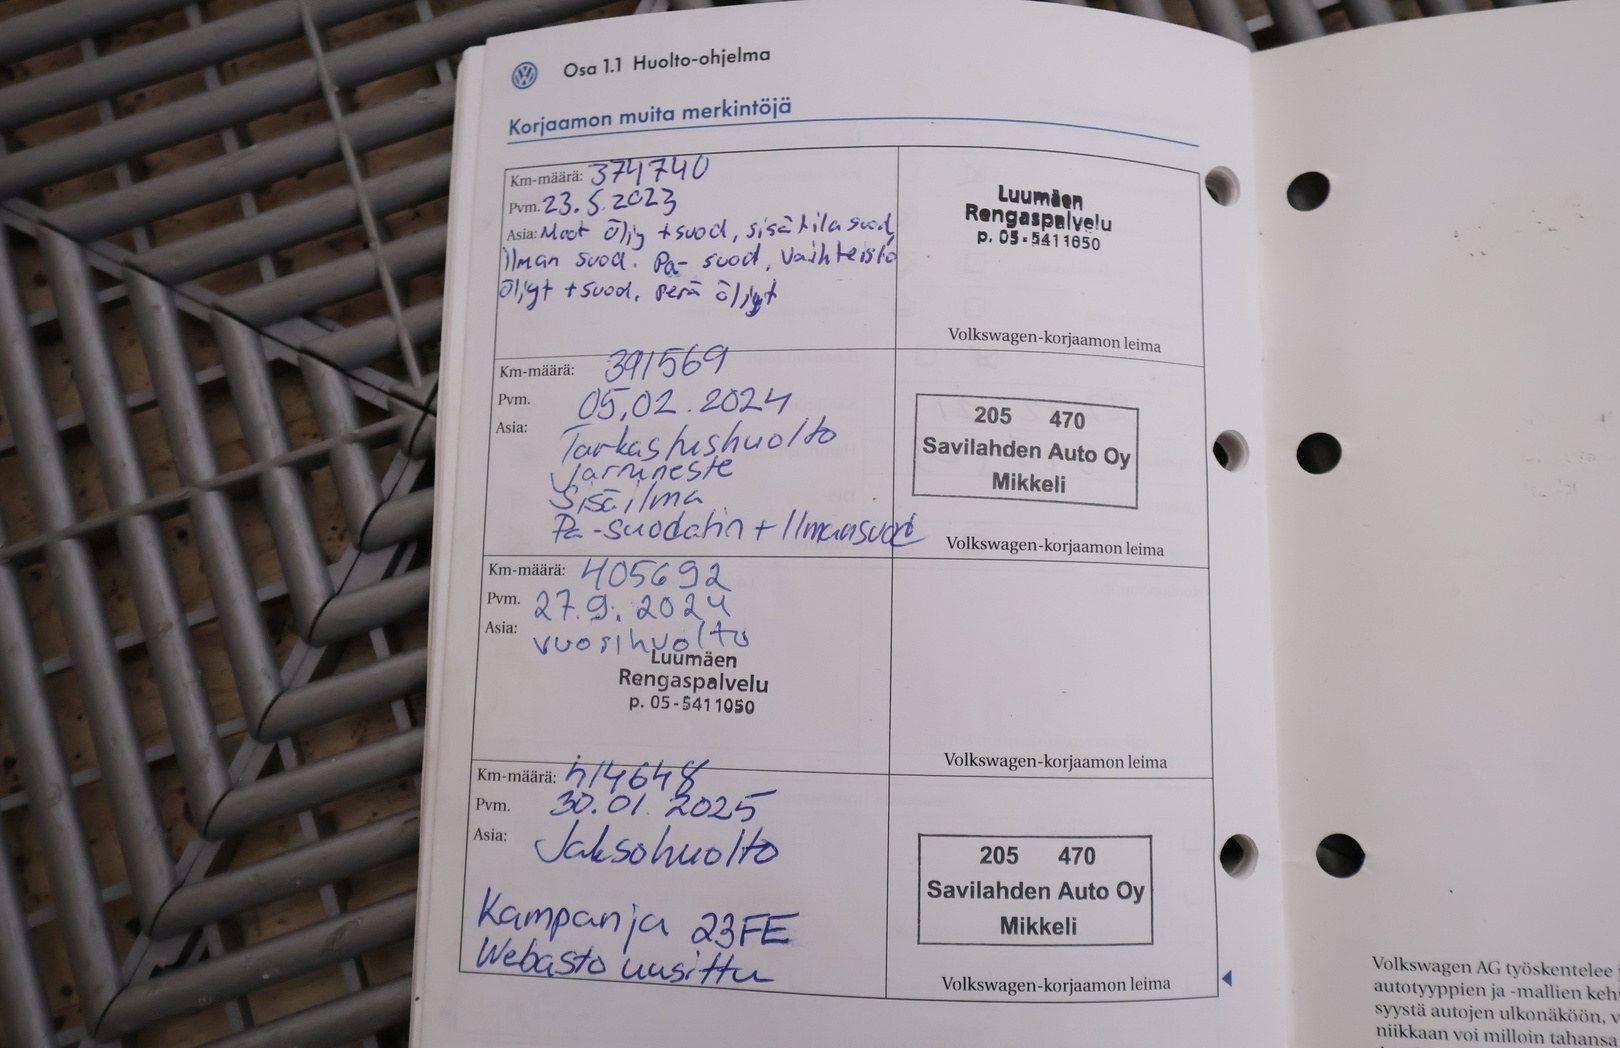 Osa 1.1 Huolto-ohjelma
Korjaamon muita merkintöjä
Km-määrä: 374740
Pvm. 23.5.2023
Asia: Moot öljy + suod, sisätila suod,
Ilman suod. Pa- suod, vaihteisto
öljyt + suod, perä öljyt
Luumäen
Rengaspalvelu
p. 05-5411050
Volkswagen-korjaamon leima
Km-määrä: 391569
Pvm. 05.02.2024
Asia: Tarkastushuolto
Jarruneste
Sisäilma
Pa-suodatin + Ilmansuod
205 470
Savilahden Auto Oy
Mikkeli
Volkswagen-korjaamon leima
Km-määrä: 405692
Pvm. 27.9.2024
Asia: vuosihuolto
Luumäen
Rengaspalvelu
p. 05-5411050
Volkswagen-korjaamon leima
Km-määrä: 414648
Pvm. 30.01.2025
Asia: Jaksohuolto
Kampanja 23FE
Webasto uusittu
205 470
Savilahden Auto Oy
Mikkeli
Volkswagen-korjaamon leima
Volkswagen AG työskentelee
autotyyppien ja -mallien
systä autojen ulkonäköön,
niikkaan voi milloin tahansa